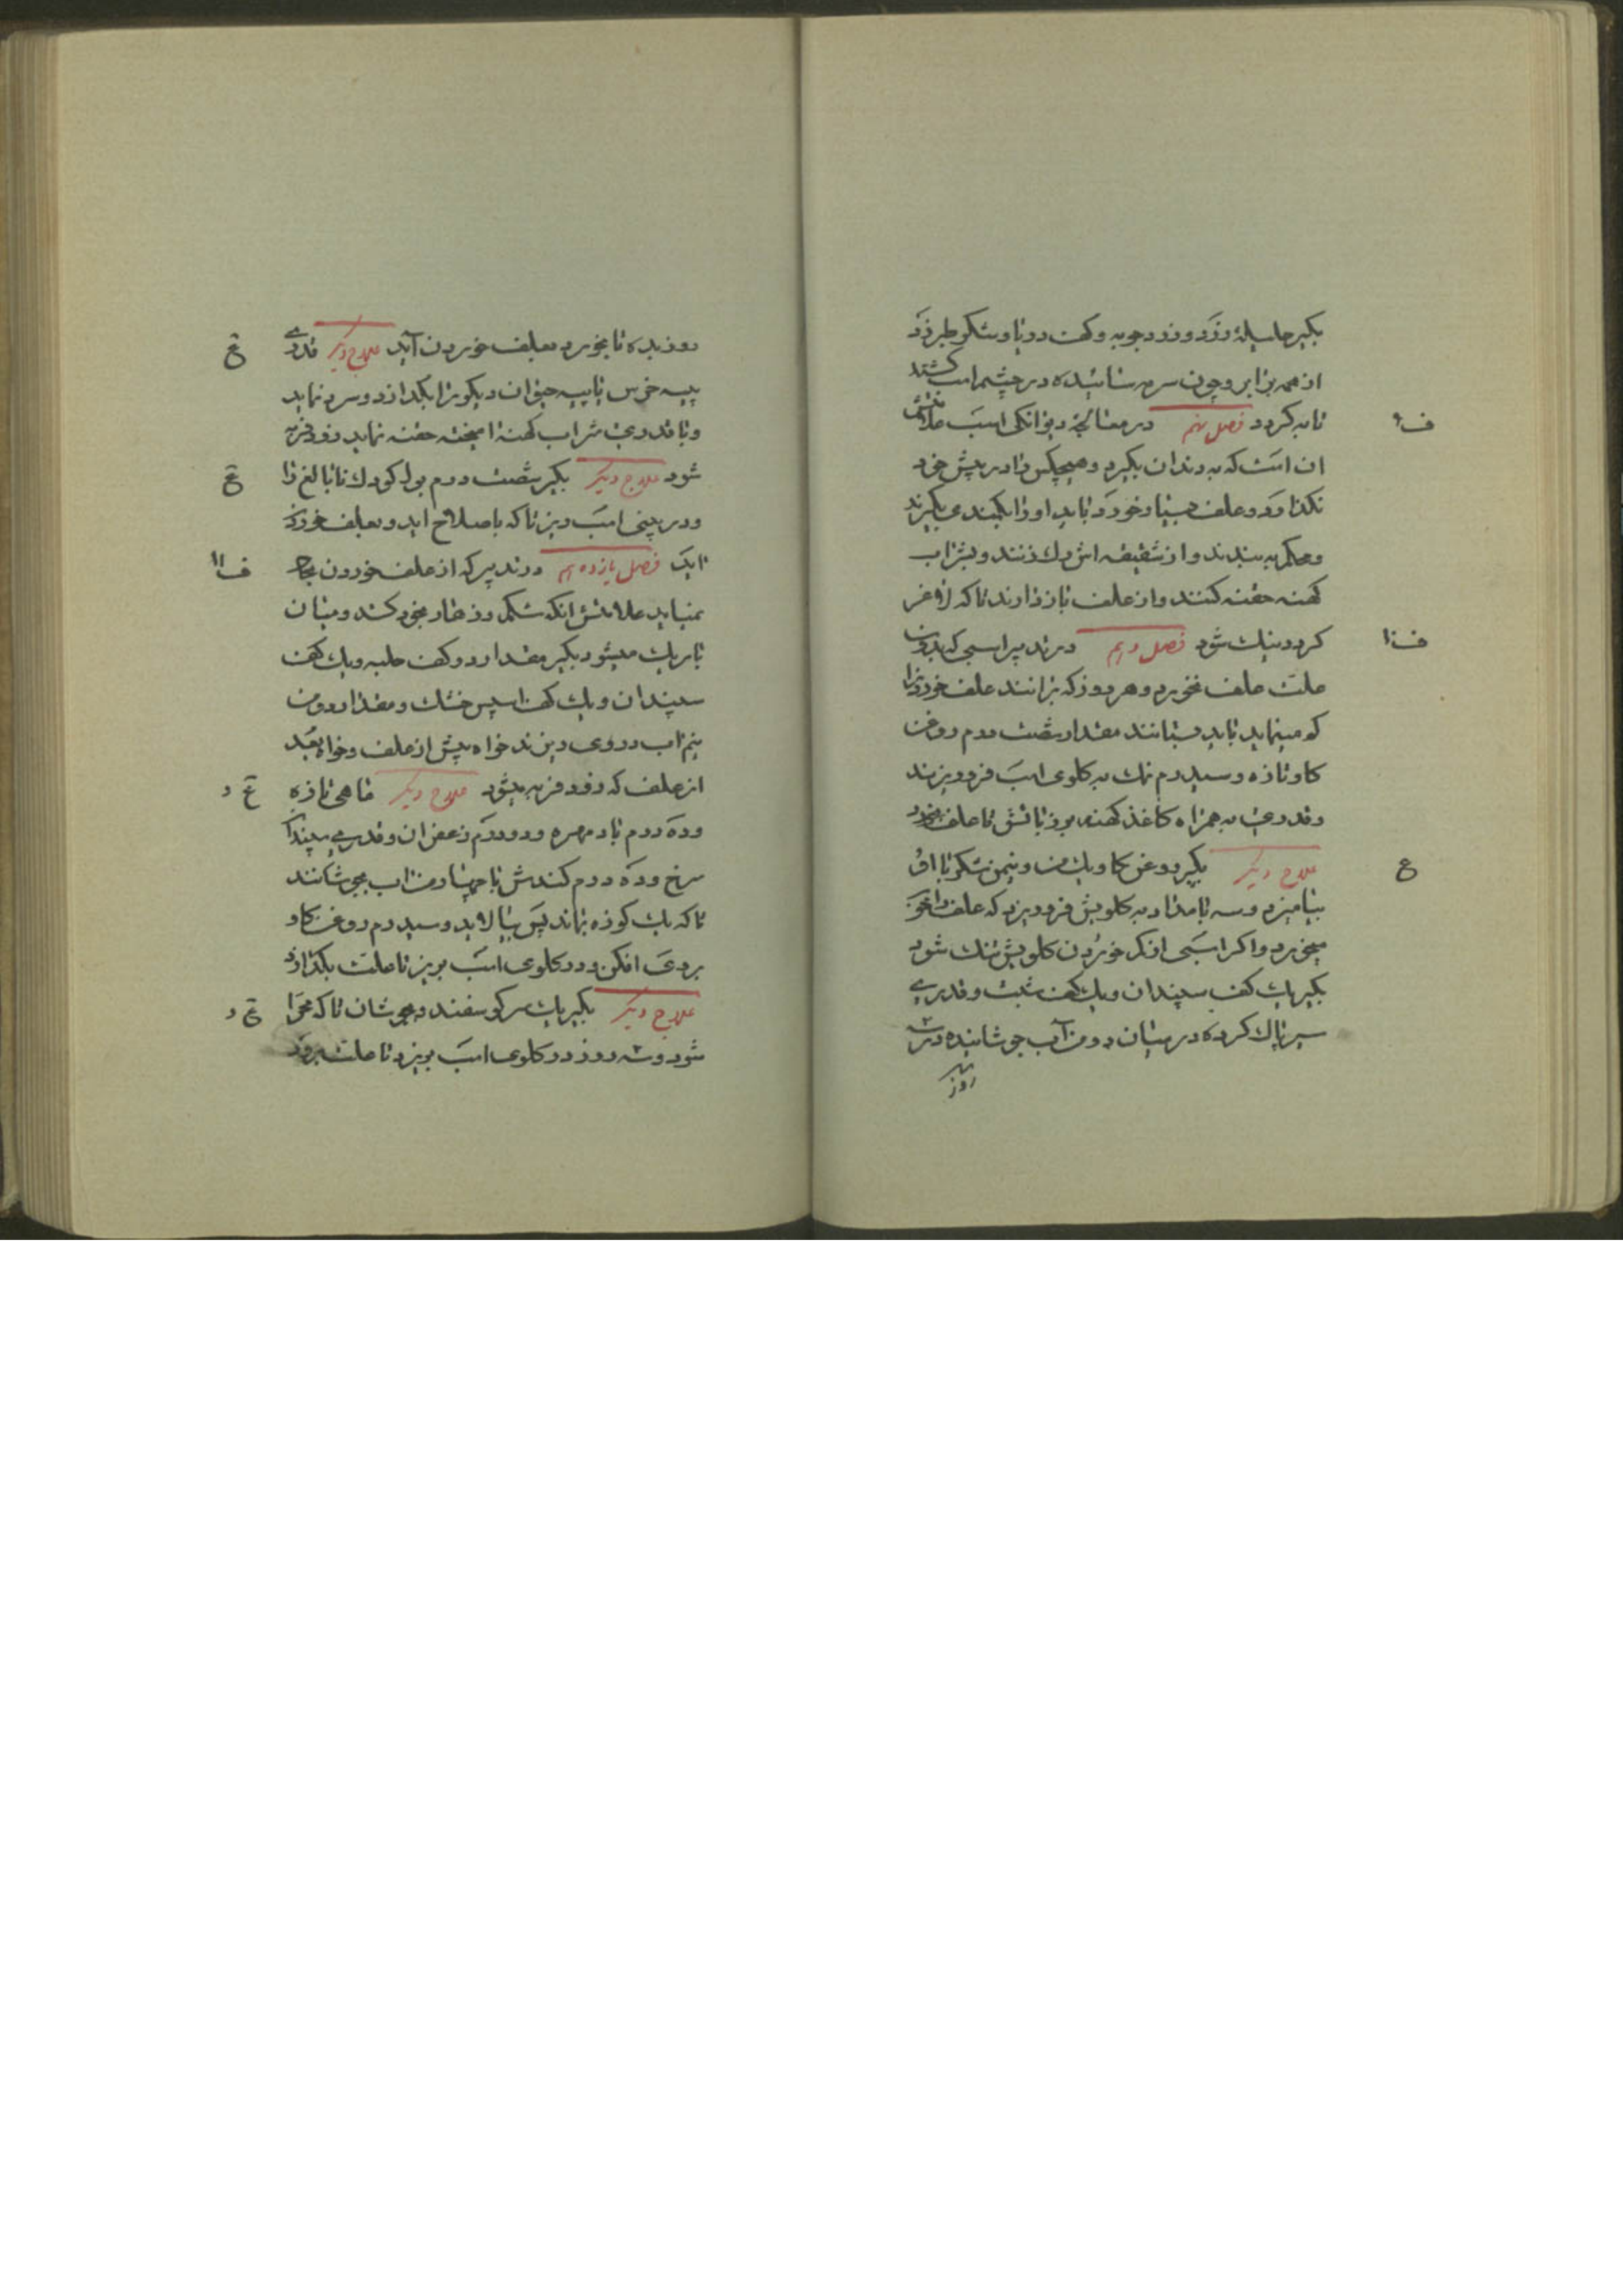 بکیر هلیلهٔ زرد و زرد چوبه و کف دریا و شکر طبرزد
از همه برابر و چون سرمه سائیده در چشم اسب کشند
تا به کردد فصل نهم در معالجهٔ دیوانکی اسب علامتش
ان است که به دندان بکیرد و هیچکس را در پیش خود
نکذارد و علف بسیار خورد باید او را بکمندی بکیرند
و محکم به بندند و از شقیقه اش رک زنند و بشراب
کهنه حقنه کنند و از علف باز دارند تا که لاغر
کردد نیک شود فصل دهم در تدبیر اسبی که بدون
علت علف نخورد و هر روز که برانند علف خوردن را
کم مینماید باید بستانند مقدار شصت درم روغن
کاو تازه و سیصد درم نمک به کلوی اسب فرو ریزند
و قدری به همراه کاغذ کهنه بوز باتش تا علف بخورد
علاج دیکر بکیر روغن کاو یک من و نیم من شکر با او
بیامیزد و سه بامداد به کلویش فرو ریزد که علف را خو
میخورد و اکر اسبی از کم خوردن کلویش تنک شود
بکیر یک کف سپندان و یک کف شبت و قدری
سیر پاک کرده در میان دو من آب جوشانیده در سه
سه روز
ف ۹
ف ۱۰
ع
روز بده تا بخورد بعلف خوردن آید علاج دیکر قدری
پیه خرس یا پیه حیوان دیکر را بکدازد و سرد نماید
و با قدری شراب کهنه امیخته حقنه نماید زود فربه
شود علاج دیکر بکیر شصت درم بول کودک نابالغ را
و در بینی اسب ریز تا که باصلاح اید و بعلف خوردن
اید فصل یازدهم در تدبیر که از علف خوردن بجا
نمیاید علامتش انکه شکم و زهار بخود کشد و میان
باریک میشود بکیر مقدار دو کف حلبه و یک کف
سپندان و یک کف اسپس خشک و مقدار دو من
نیم اب در وی ریزند خواه پیش از علف و خواه بعد
از علف که زود فربه میشود علاج دیکر ماهی تازه
و ده درم بادمهره و دو درم زعفران و قدری سپندان
سرخ و ده درم کندش با چهار من اب بجوشانند
تا که یک کوزه بماند پس بپالاید و سیصد درم روغن کاو
بروی افکن و در کلوی اسب بریز تا علت بکذارد
علاج دیکر بکیر یک سر کوسفند و بجوشان تا که مهرا
شود و سه روز در کلوی اسب بریزد تا علت برود
ع
ع
ف ۱۱
ع د
ع د